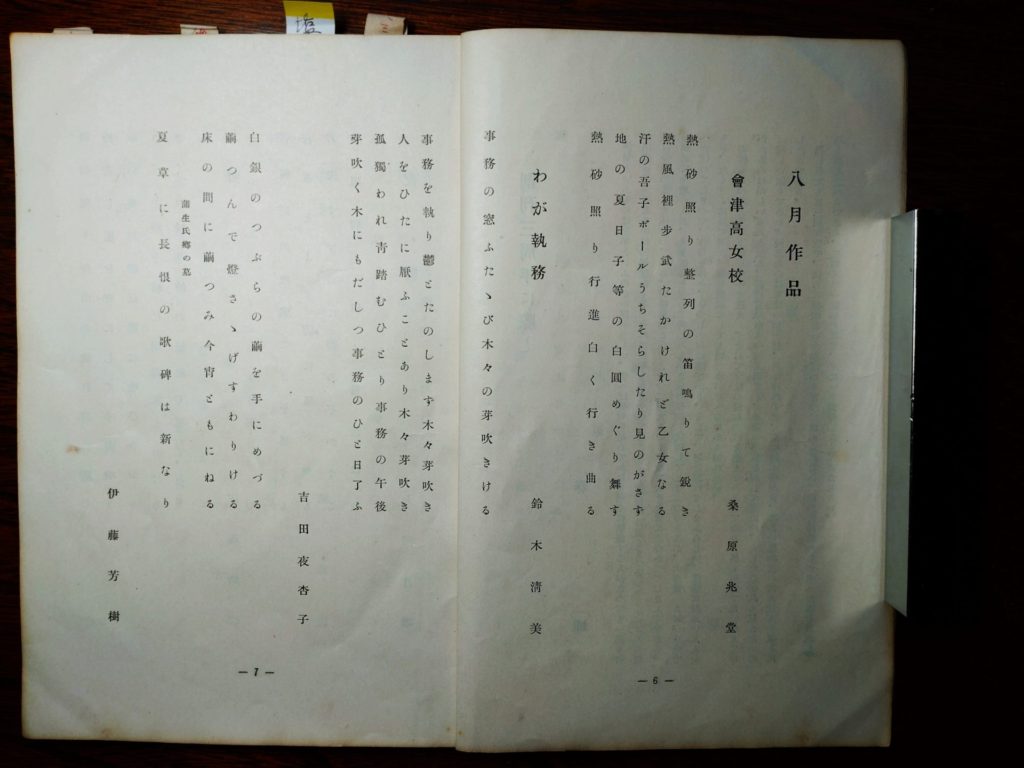 八月作品
會津高女校
桑原兆堂
熱砂照り整列の笛鳴りて鋭き
熱風裡歩武たかけれど乙女なる
汗の吾子ボールうちそらしたり見のがさず
地の夏日子等の白圓めぐり舞す
熱砂照り行進白く行き曲る
わが執務
鈴木淸美
事務の窓ふたゝび木々の芽吹きける
— 6 —
事務を執り鬱とたのします木々芽吹き
人をひたに厭ふことあり木々芽吹き
孤獨われ靑踏むひとり事務の午後
芽吹く木にもだしつ事務のひと日了ふ
吉田夜杏子
白銀のつぶらの繭を手にめづる
繭つんで燈さゝげすわりける
床の間に繭つみ今宵ともにねる
蒲生氏鄕の墓
夏草に長恨の歌碑は新なり
伊藤芳樹
— 7 —